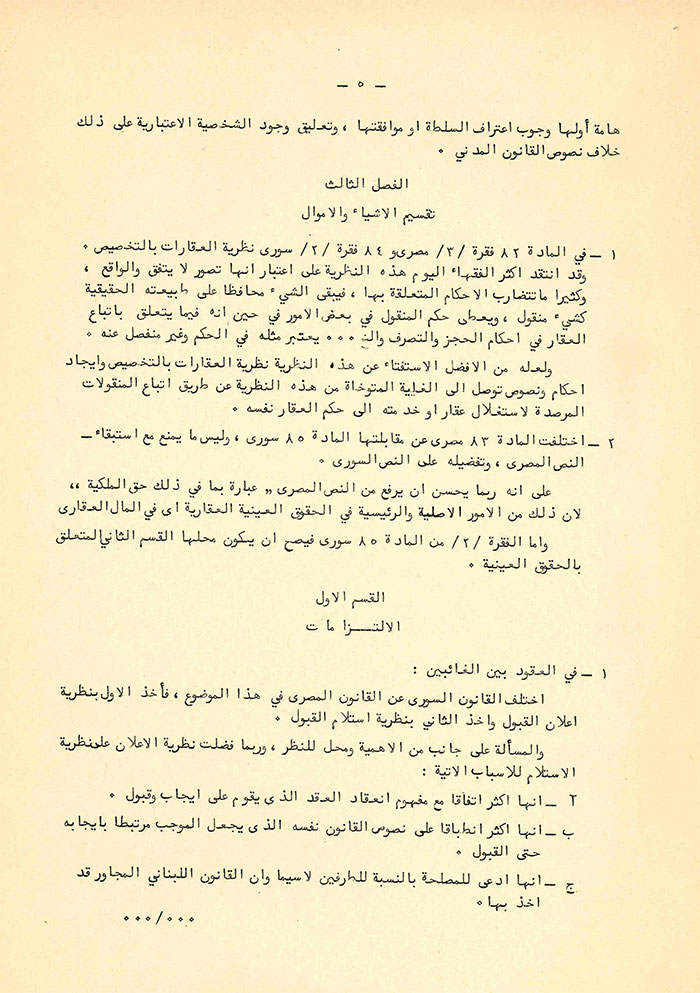 ـ ٥ ـ
هامة أولها وجوب اعتراف السلطة او موافقتها ، وتعليق وجود الشخصية الاعتبارية على ذلك
خلاف نصوص القانون المدني ٠
الفصل الثالث
تقسيم الاشياء والاموال
١ ـ في المادة ٨٢ فقرة /٣/ مصرى و ٨٤ فقرة /٢/ سورى نظرية العقارات بالتخصيص ٠
وقد انتقد اكثر الفقهاء اليوم هذه النظرية على اعتبار انها تصور لا يتفق والواقع ،
وكثيرا ماتتضارب الاحكام المتعلقة بها ، فيبقى الشيء محافظا على طبيعته الحقيقية
كشيء منقول ، ويعطى حكم المنقول في بعض الامور في حين انه فيما يتعلق باتباع
العقار في احكام الحجز والتصرف والخ ٠٠٠ يعتبر مثله في الحكم وغير منفصل عنه ٠
ولعله من الافضل الاستفتاء عن هذه النظرية نظرية العقارات بالتخصيص وايجاد
احكام ونصوص توصل الى الغاية المتوخاة من هذه النظرية عن طريق اتباع المنقولات
المرصدة لاستغلال عقار او خدمته الى حكم العقار نفسه ٠
٢ ـ اختلفت المادة ٨٣ مصرى عن مقابلتها المادة ٨٥ سورى ، وليس ما يمنع مع استبقاء ـ
النص المصرى ، وتفضيله على النص السورى ٠
على انه ربما يحسن ان يرفع من النص المصرى ,, عبارة بما في ذلك حق الملكية ،،
لان ذلك من الامور الاصلية والرئيسية في الحقوق العينية العقارية اى في المال العقارى
واما الفقرة /٢/ من المادة ٨٥ سورى فيصح ان يكون محلها القسم الثاني المتعلق
بالحقوق العينية ٠
القسم الاول
الالتـــزامات
١ ـ في العقود بين الغائبين :
اختلف القانون السورى عن القانون المصرى في هذا الموضوع ، فأخذ الاول بنظرية
اعلان القبول واخذ الثاني بنظرية استلام القبول ٠
والمسألة على جانب من الاهمية ومحل للنظر ، وربما فضلت نظرية الاعلان على نظرية
الاستلام للاسباب الاتية :
آ ـ انها اكثر اتفاقا مع مفهوم انعقاد العقد الذى يقوم على ايجاب وقبول ٠
ب ـ انها اكثر انطباقا على نصوص القانون نفسه الذى يجعل الموجب مرتبطا بايجابه
حتى القبول ٠
ج ـ انها ادعى للمصلحة بالنسبة للطرفين لاسيما وان القانون اللبناني المجاور قد
اخذ بها ٠
٠٠٠/٠٠٠